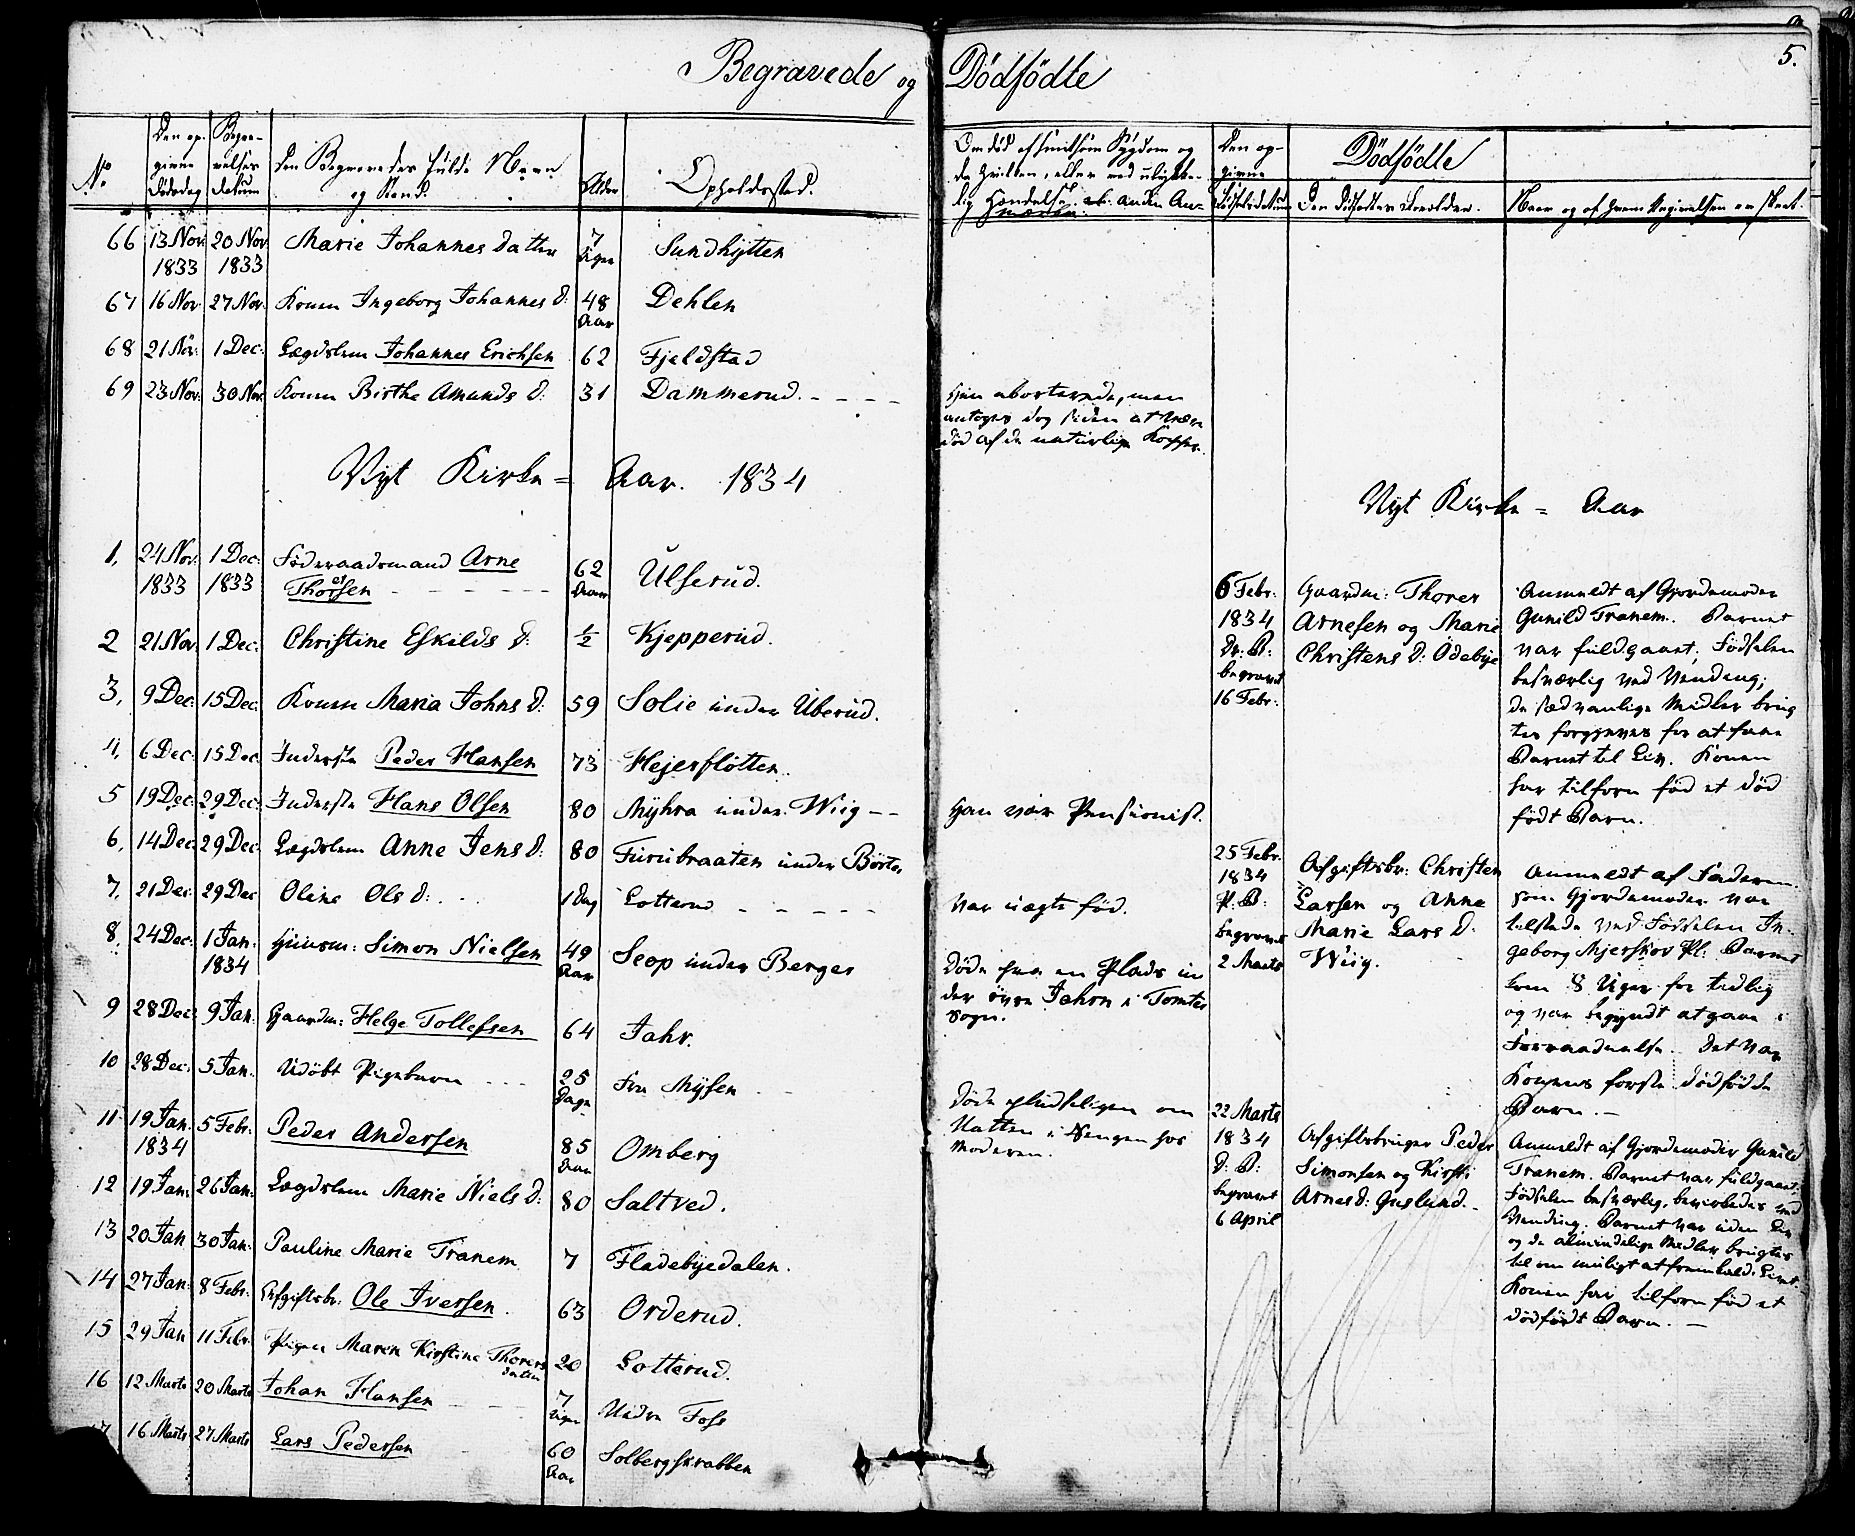 Begravede og Dödfödte
5.
No
Den op-
givne
Dödsdag
Begra-
velses
datum
Den Begravedes fulde Navn
og Stand.
Alder
Opholdssted.
Om död af smitsom Sygdom og
da hvilken, eller ved ulykke-
lig Hændelse
Den op-
givne
Födselsdatum
Dödfödte
Den Dödfödtes Forældre.
Naar og af hvem Angivelsen er skeet.
66 13 Nov 20 Nov Marie Johannesdatter 7 Sundhytten
1833 1833 Uger
67 16 Nov 27 Nov Konen Ingeborg Johannes d: 48 Dehlen
Aar
68 21 Nov: 1 Dec: Lægdslem Johannes Erichsen 62 Fjeldstad
69 23 Nov: 30 Nov Konen Birthe Amunds d: 31 Dammerud. - - - -
Hun aborterede, men
antoges dog siden at være
död af de naturlige Kopper.
Nyt Kirke = Aar. 1834
Nyt Kirke = Aar
1, 24 Nov: 1 Dec: Föderaadsmand Arne 62 Ulserud.
1833 1833 Thorsen - - - - - - Aar
2 21 Nov 1 Dec: Christine Eskilds d: ½ Kjepperud.
3, 9 Dec: 15 Dec: Konen Maria Johns d: 59 Solie under Uberud.
4, 6 Dec: 15 Dec Inderste Peder Hansen 73 Hejerslötten.
5 19 Dec: 29 Dec: Inderste Hans Olsen 80 Myhra under Wiig - - Han var Pensionist.
6, 14 Dec: 29 Dec: Lægdslem Anne Jens d: 80 Furubraaten under Börte,
7, 21 Dec: 29 Dec Oline Ols d: . . . 1 Dag Lotterud - - - - - Var uægte föd.
8, 24 Dec: 1 Jan: Huusm: Simon Nielsen 49 Seop under Berger
1834 Aar
Döde paa en Plads un
der övre Jahrn i Tomter
Sogn.
9 28 Dec: 9 Jan: Gaardm: Helge Tollefsen 64 Jahr.
10 28 Dec: 5 Jan: Udöbt Pigebarn - - - 25 Fra Mysen
Dage
Döde pludseligen om
Natten i Sengen hos
Moderen.
11 19 Jan. 5 Febr: Peder Andersen 85 Omberg
1834 Aar
12 19 Jan: 26 Jan: Lægdslem Marie Niels d: 80 Saltved.
13 20 Jan 30 Jan: Pauline Marie Tranem 7 Fladebyedalen.
14 27 Jan: 8 Febr: Afgiftsbr: Ole Iversen. 63 Orderud.
15 29 Jan 11 Febr Pigen Maren Kirstine Thorers 20 Lotterud.
datter
16 12 Marts 20 Marts Johan Hansen - - - 7 Nedre Foss
Uger
17 16 Marts 27 Marts Lars Pedersen 60 Solbergskrabben
Aar
6 Febr:
1834
begravet
16 Febr:
Gaardm: Thorer
Arnesen og Marie
Christens d: Ödebye
Anmeldt af Gjordemoder
Gunild Tranem. Barnet
var fuldgaaet; Födselen
besværlig ved Vending;
de sædvanlige Midler brug
tes forgjeves for at faae
Barnet til Liv. Konen
har tilforn föd et död
födt Barn.
25 Febr.
1834
begravet
2 Marts
Afgiftsbr: Christen
Larsen og Anne
Marie Lars d:
Wiig.
Anmeldt af Faderen.
som Gjordemoder var
tilstede ved Födselen In-
geborg Mjerskov Pl: Barnet
kom 8 Uger for tidlig
og var begyndt at gaae i
Forraadnelse. Det var
Konens förste dödfödde
Barn. -
22 Marts
1834
begravet
6 April
Afgiftsbruger Peder
Simonsen og Kirsti
Arnesd: Guslund. -
Anmeldt af Gjordemoder Gunild
Tranem. Barnet var fuldgaaet;
Födselen besværlig, bevirkedes ved
Vending. Barnet var uden Liv
og de almindelige Midler brugtes
til om muligt at fremkald: Livet.
Konen har tilforn föd et
dödfödt Barn. -